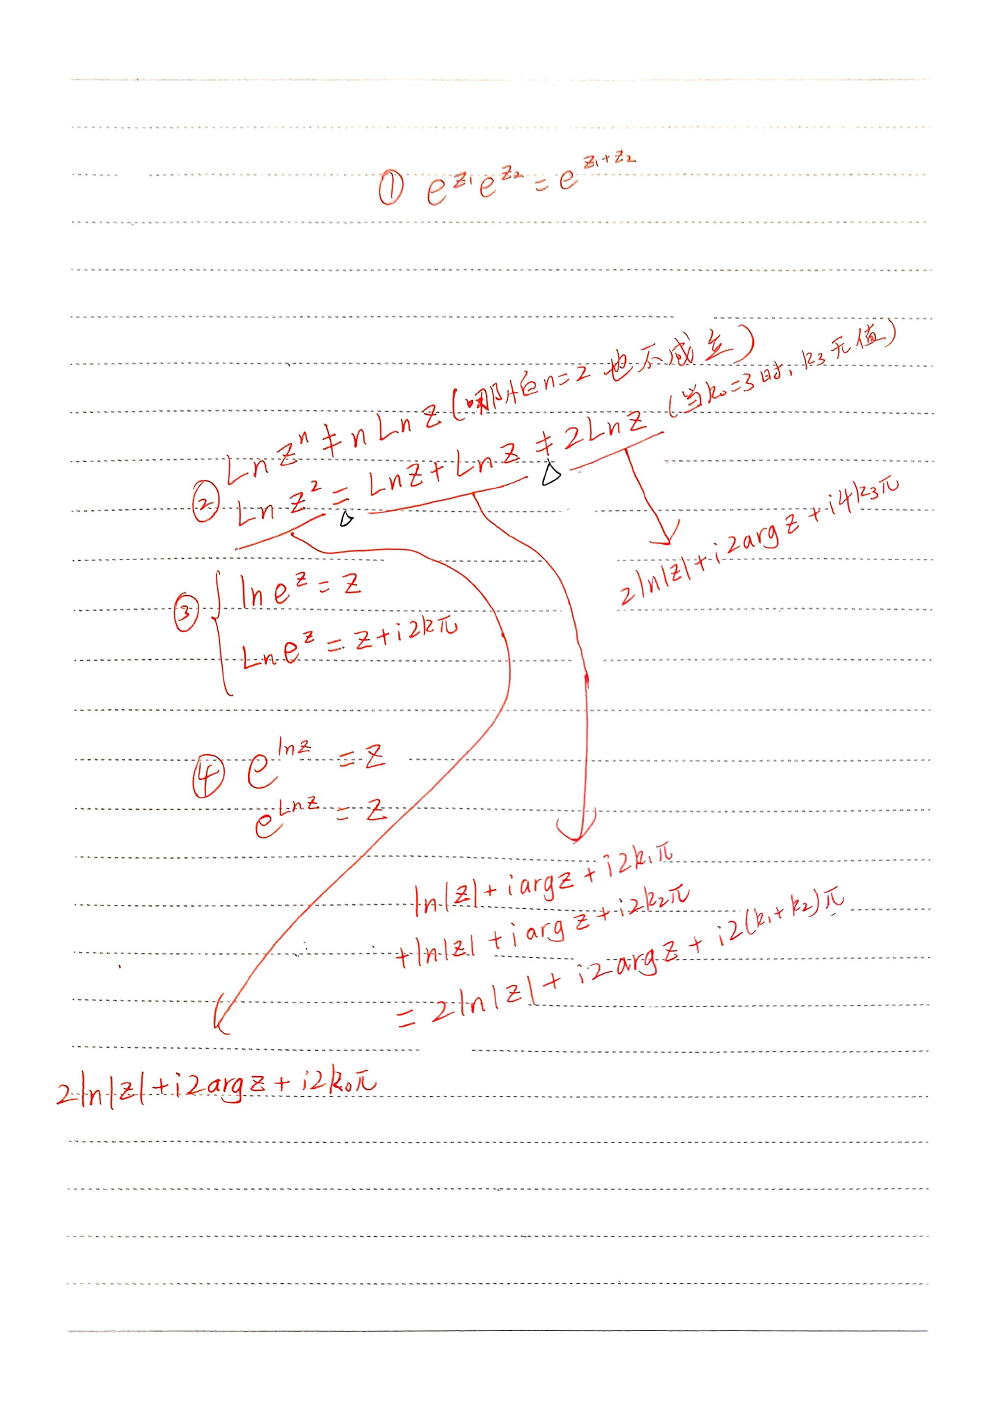 ① e^{z₁}e^{z₂} = e^{z₁+z₂}
Ln zⁿ ≠ n Ln z (哪怕n=2 也不成立)
② Ln z² = Ln z + Ln z ≠ 2 Ln z (当k₀=3时, k₃无值)
△ △
2ln|z| + i2arg z + i4k₃π
③ { ln e^z = z
Ln e^z = z + i2kπ
④ e^{ln z} = z
e^{Ln z} = z
ln|z| + i arg z + i2k₁π
+ ln|z| + i arg z + i2k₂π
= 2ln|z| + i2arg z + i2(k₁+k₂)π
2ln|z| + i2arg z + i2k₀π